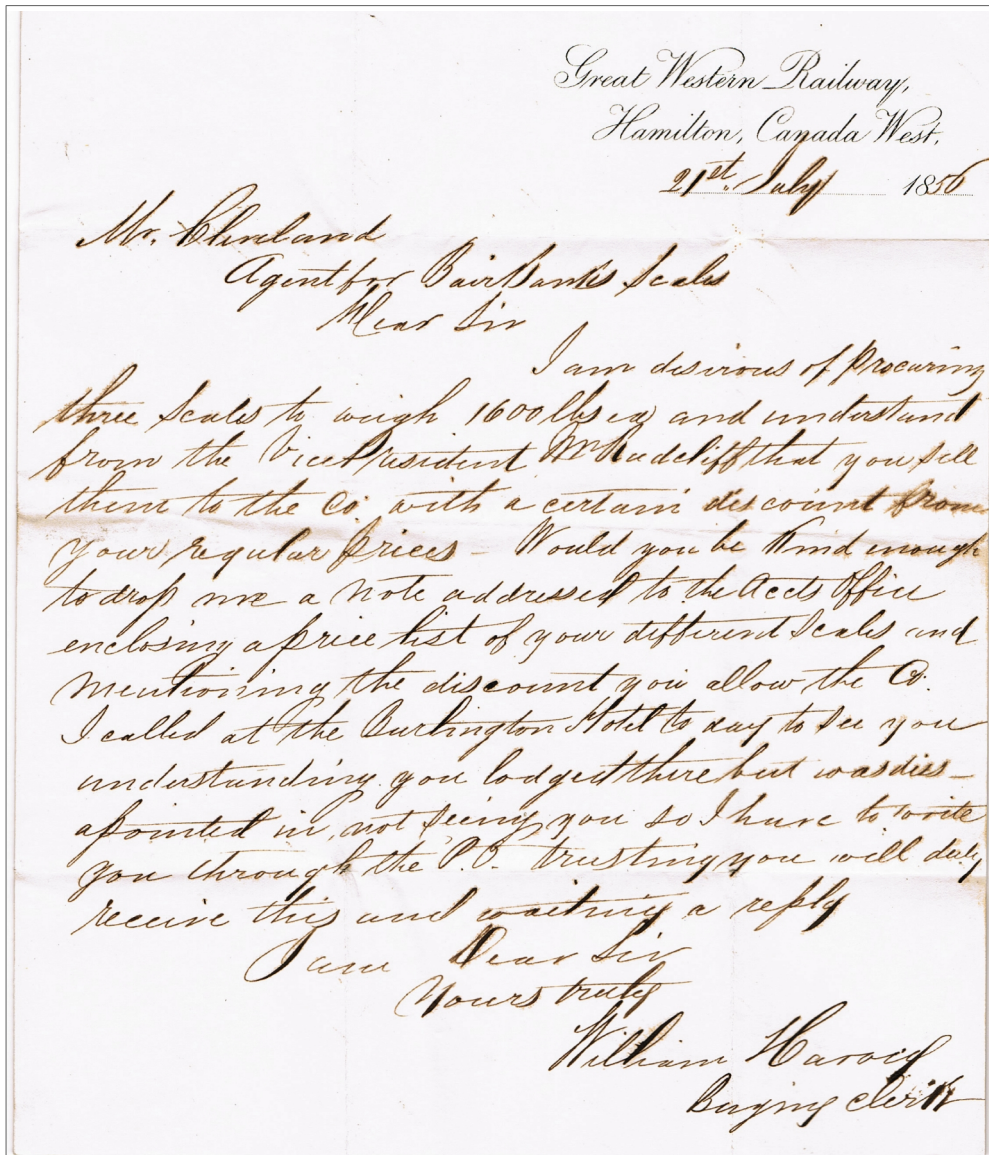 Great Western Railway,
Hamilton, Canada West.
21st. July 1856
Mr. Cleveland
Agent for Fairbanks Scales
Dear Sir
I am desirous of procuring
three Scales to weigh 1600 lbs ea) and understand
from the Vice President Mr Radcliff that you sell
them to the Co. with a certain discount from
your regular prices - Would you be Kind enough
to drop me a note addressed to the Accts Office
enclosing a price list of your different Scales and
mentioning the discount you allow the Co.
I called at the Burlington Hotel to day to see you
understanding you lodged there but was dis-
apointed in not seeing you so I have to write
you through the P.O. trusting you will duly
receive this and waiting a reply
I am Dear Sir
Yours truly
William
Buying Clerk